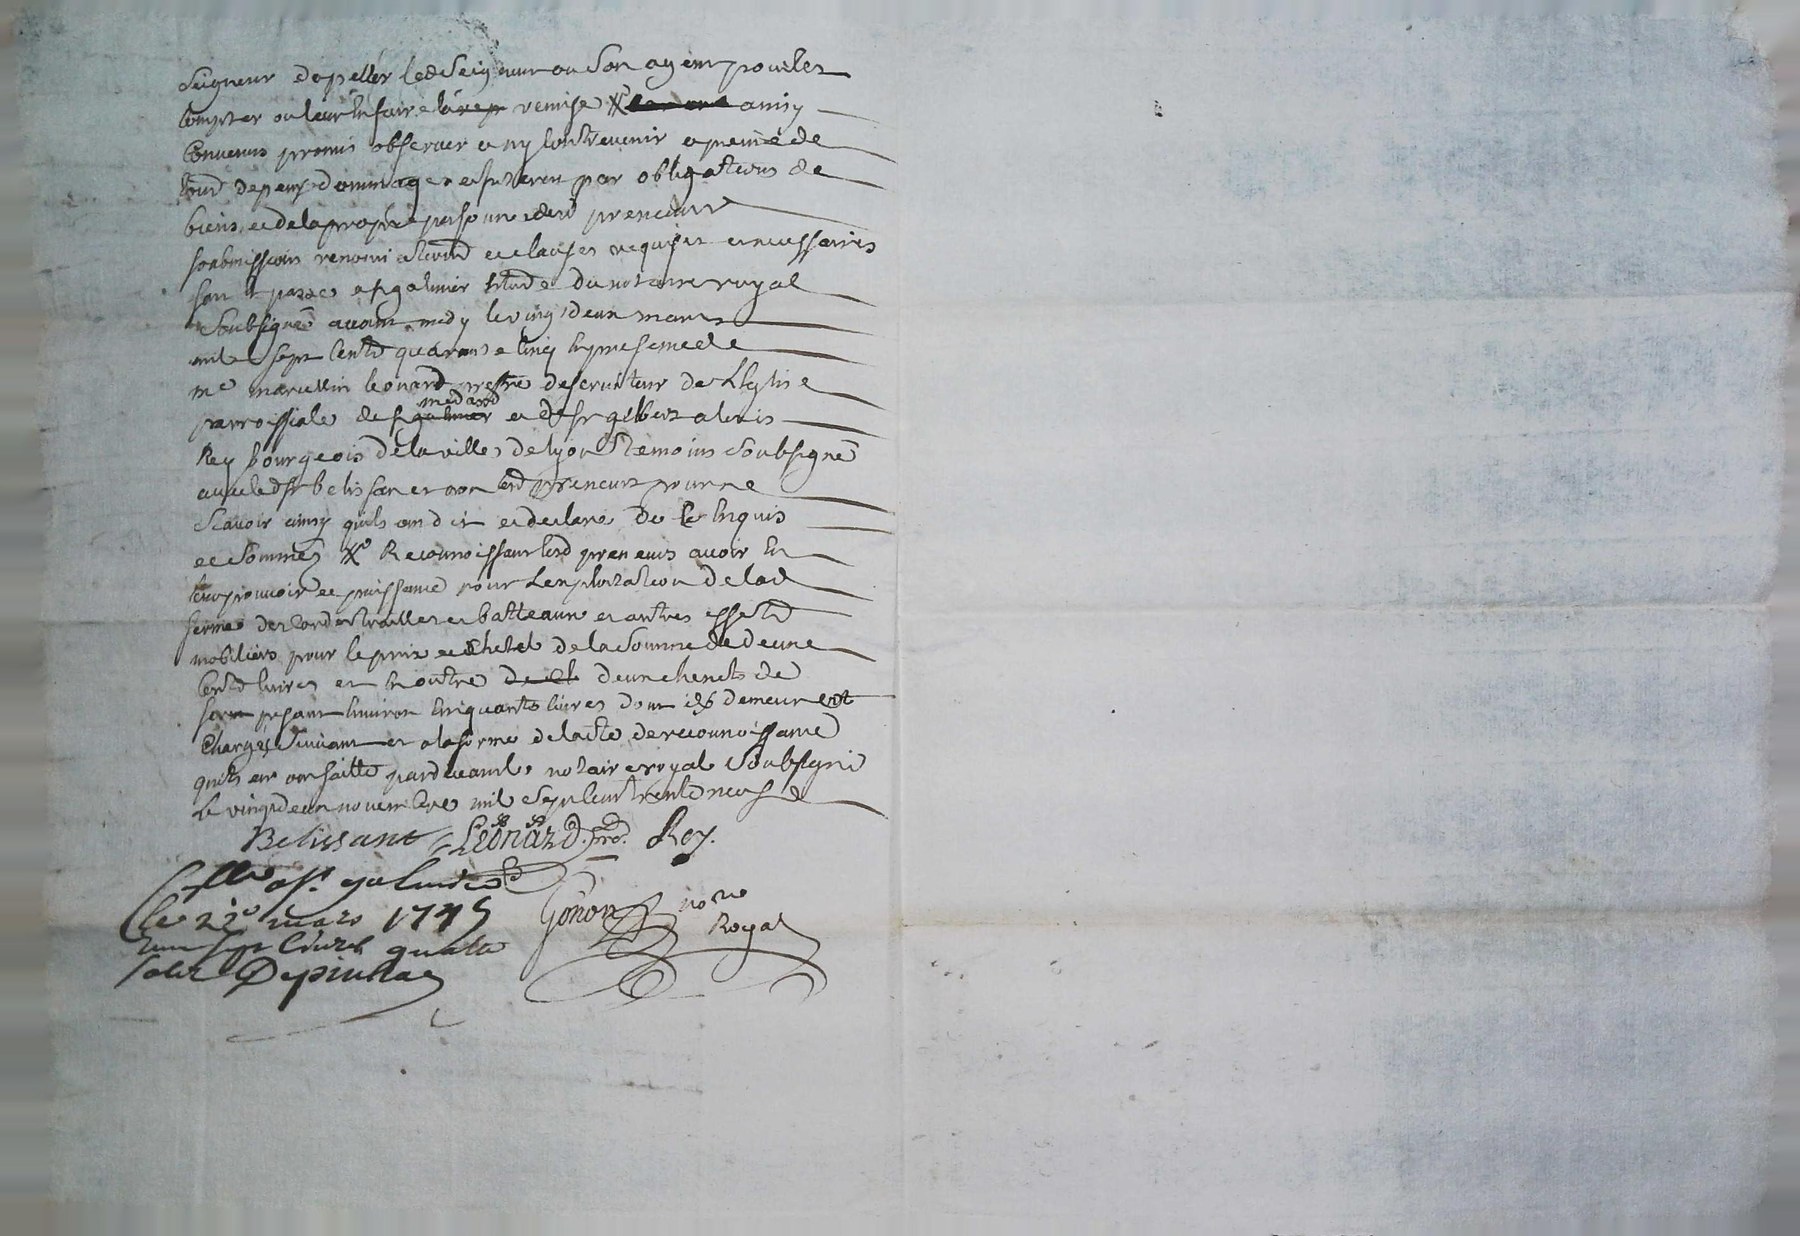 Seigneur dapeller led Seigneur ou Son agent pour les
Compter ou leur En faire remise X ainsy
Convenus promis observer a ny Contrevenir a peine de
tous depens dommages et par obligations de
biens et de la propre personne desd preneurs
soubmissions renoncia et clauses requises et necessaires
fait et passe a st galmier Etude du notaire royal
Soubsigné avant midy le vingt deux mars
mil Sept Centz quarante Cinq En presence de
me marcellin leonard prestre deserviteur de L'Eglise
parroissiale de st medard et de sr gilbert alexis
Rey bourgeois de la ville de lyon temoins Soubsigné
avec led sr belissant et non lesd preneurs pour ne
Scavoir ainsy quils ont dit et declare de ce Enquis
et Sommes X Reconnoissant lesd preneurs avoir En
leur pouvoir et puissance pour L'exploitation de lad
ferme des cordes traille et batteaux et autres effetz
mobiliers pour le prix et Chetel de la Somme de deux
Centz livres et En outre deux chenets de
pesant Environ Cinquante livres dont ils demeurent
Chargés Suivant et a la forme de l'acte de reconnoissance
quils en ont faitte pardevant le notaire royal Soubsigné
le vingt deux novembre mil Sept Cent trente neuf
Belissant Leonard. pre. Rey.
a st. galmier
le 22e mars 1745
Sept livres quatre
solz Depinhac
Gonon nore
Royal